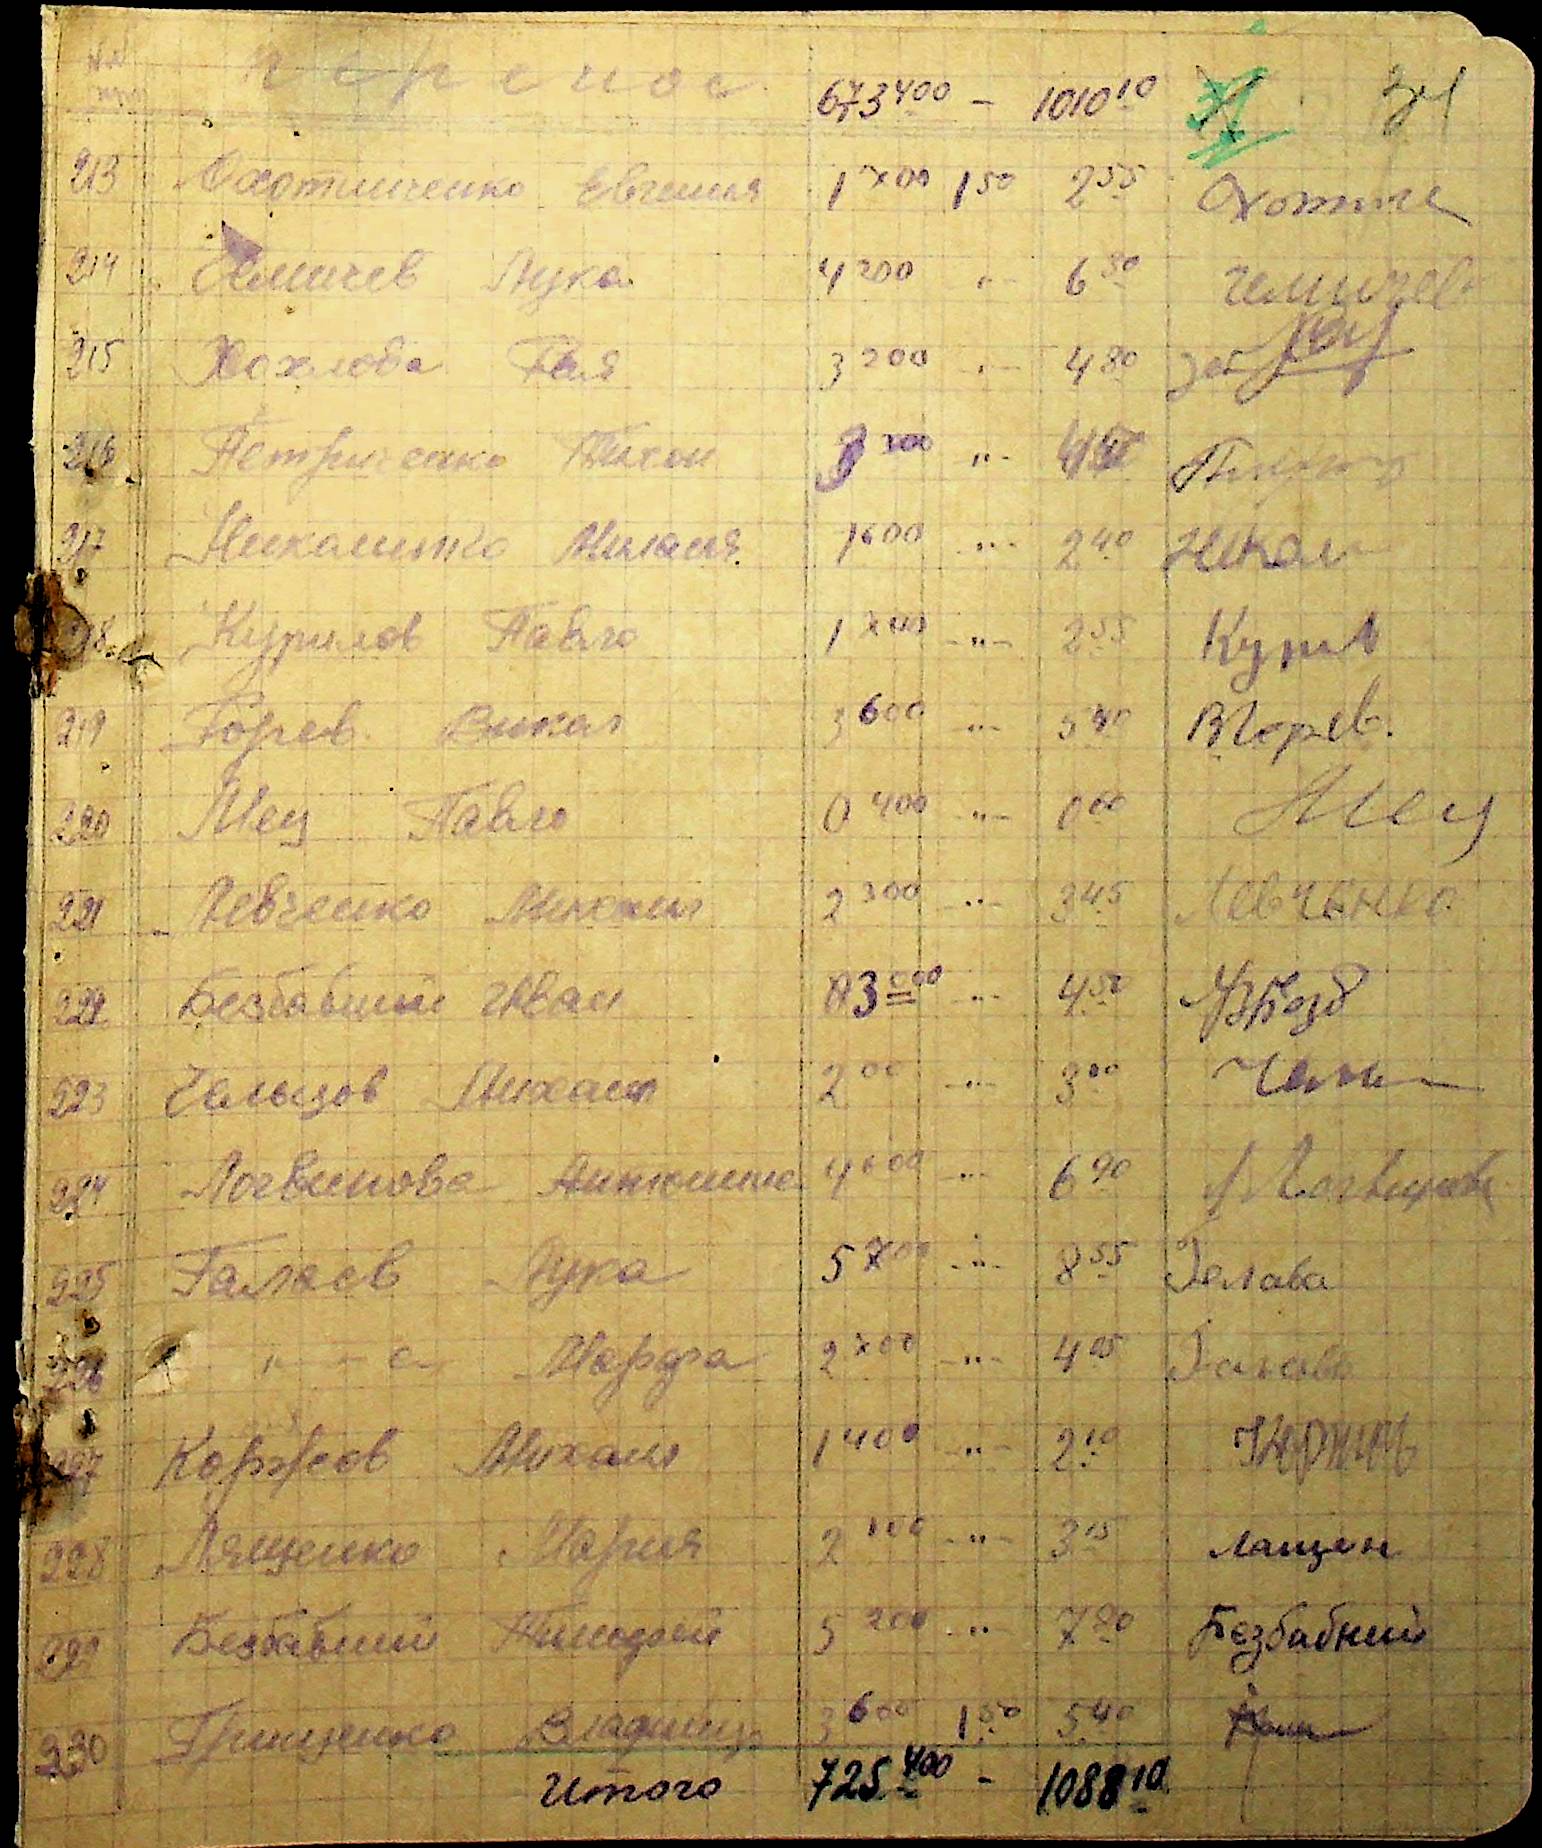 Перенос 673 400 - 1010 10
213 Охотниченко Евгения 1 700 1 50 2 55 Охотниче
214 Чемичев Лука 4 200 " 6 30 Чемичев
215 Хохлова 3 200 " 4 80 за
216 Петриченко Тихон 3 300 "
217 Николенко 1 600 " 2 40 Нікол
218 Курилов Павло 1 700 " 2 55 Курил
219 Горев Михаил 3 600 " 5 40 Горев.
220 Мец Павло 0 400 " 0 60 Мец
221 Левченко Михаил 2 300 " 3 45 Левченко
222 Безбабный Иван 3 000 " 4 50 Безб
223 Чельцов Михаил 2 00 " 3 00
224 Логвинова Антонина 4 600 " 6 90 Логвинова
225 Галаев Лука 5 700 " 8 55 Галава
226 " Марфа 2 700 " 4 05
227 Коржов Михаил 1 400 " 2 10
228 Лященко Мария 2 100 " 3 15 Лащен
229 Безбабный Тимофей 5 200 " 7 80 Безбабний
230 Грищенко Владимир 3 600 1 50 5 40
Итого 725 400 - 1088 10